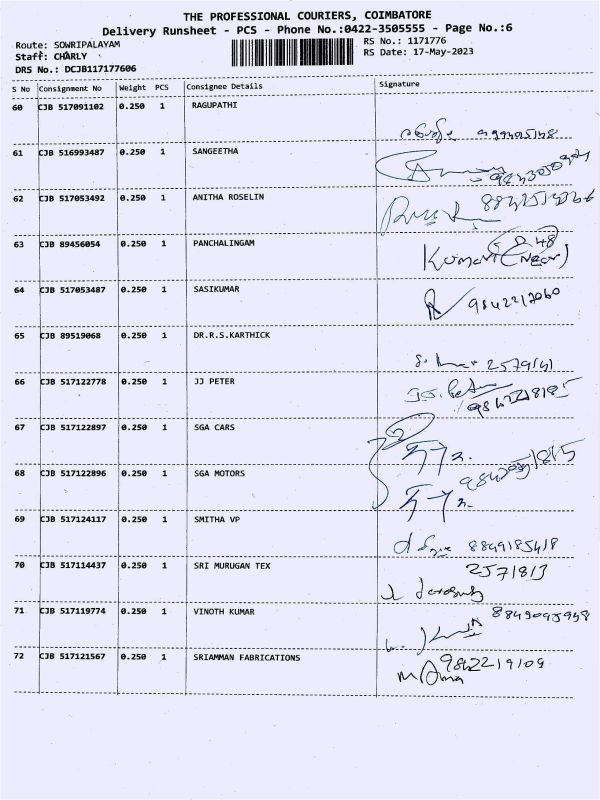 THE PROFESSIONAL COURIERS, COIMBATORE
Delivery Runsheet - PCS - Phone No.:0422-3505555 - Page No.:6
Route: SOWRIPALAYAM
RS No.: 1171776
Staff: CHARLY
RS Date: 17-May-2023
DRS No.: DCJB117177606
S No Consignment No Weight PCS Consignee Details Signature
60 CJB 517091102 0.250 1 RAGUPATHI
61 CJB 516993487 0.250 1 SANGEETHA
62 CJB 517053492 0.250 1 ANITHA ROSELIN
63 CJB 89456054 0.250 1 PANCHALINGAM
64 CJB 517053487 0.250 1 SASIKUMAR
65 CJB 89519068 0.250 1 DR.R.S.KARTHICK
2579141
66 CJB 517122778 0.250 1 JJ PETER
67 CJB 517122897 0.250 1 SGA CARS
68 CJB 517122896 0.250 1 SGA MOTORS
69 CJB 517124117 0.250 1 SMITHA VP
8849185418
70 CJB 517114437 0.250 1 SRI MURUGAN TEX
2571813
71 CJB 517119774 0.250 1 VINOTH KUMAR
72 CJB 517121567 0.250 1 SRIAMMAN FABRICATIONS
9842219109